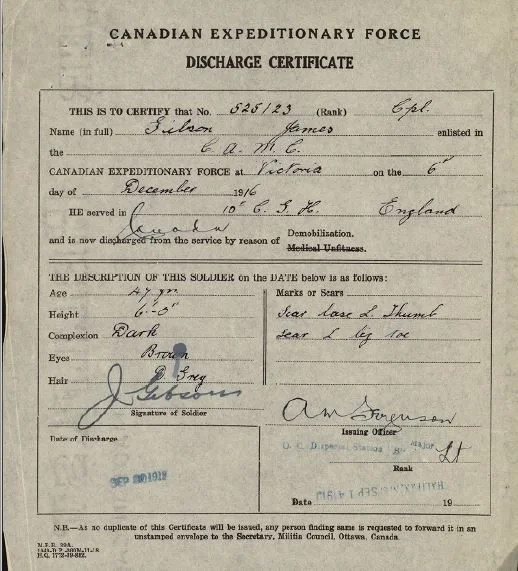 CANADIAN EXPEDITIONARY FORCE
DISCHARGE CERTIFICATE
THIS IS TO CERTIFY that No. 525123 (Rank) Cpl.
Name (in full) Gibson James enlisted in
the C. A. M. C.
CANADIAN EXPEDITIONARY FORCE at Victoria on the 6th
day of December 1916
HE served in Canada 10th C. G. H. England
and is now discharged from the service by reason of Demobilization.
Medical Unfitness.
THE DESCRIPTION OF THIS SOLDIER on the DATE below is as follows:
Age 47 yrs
Height 6'-0"
Complexion Dark
Eyes Brown
Hair D Grey
Marks or Scars
Scar base L. Thumb
Scar L big toe
J Gibson
Signature of Soldier
Date of Discharge
SEP 1919
A M Ferguson
Issuing Officer
O. C. Dispersal Station Major
Lt
Rank
HALIFAX, N.S. SEP 14 1919
Date 19
N.B.—As no duplicate of this Certificate will be issued, any person finding same is requested to forward it in an
unstamped envelope to the Secretary, Militia Council, Ottawa, Canada.
H.Q. 1772-39-882.